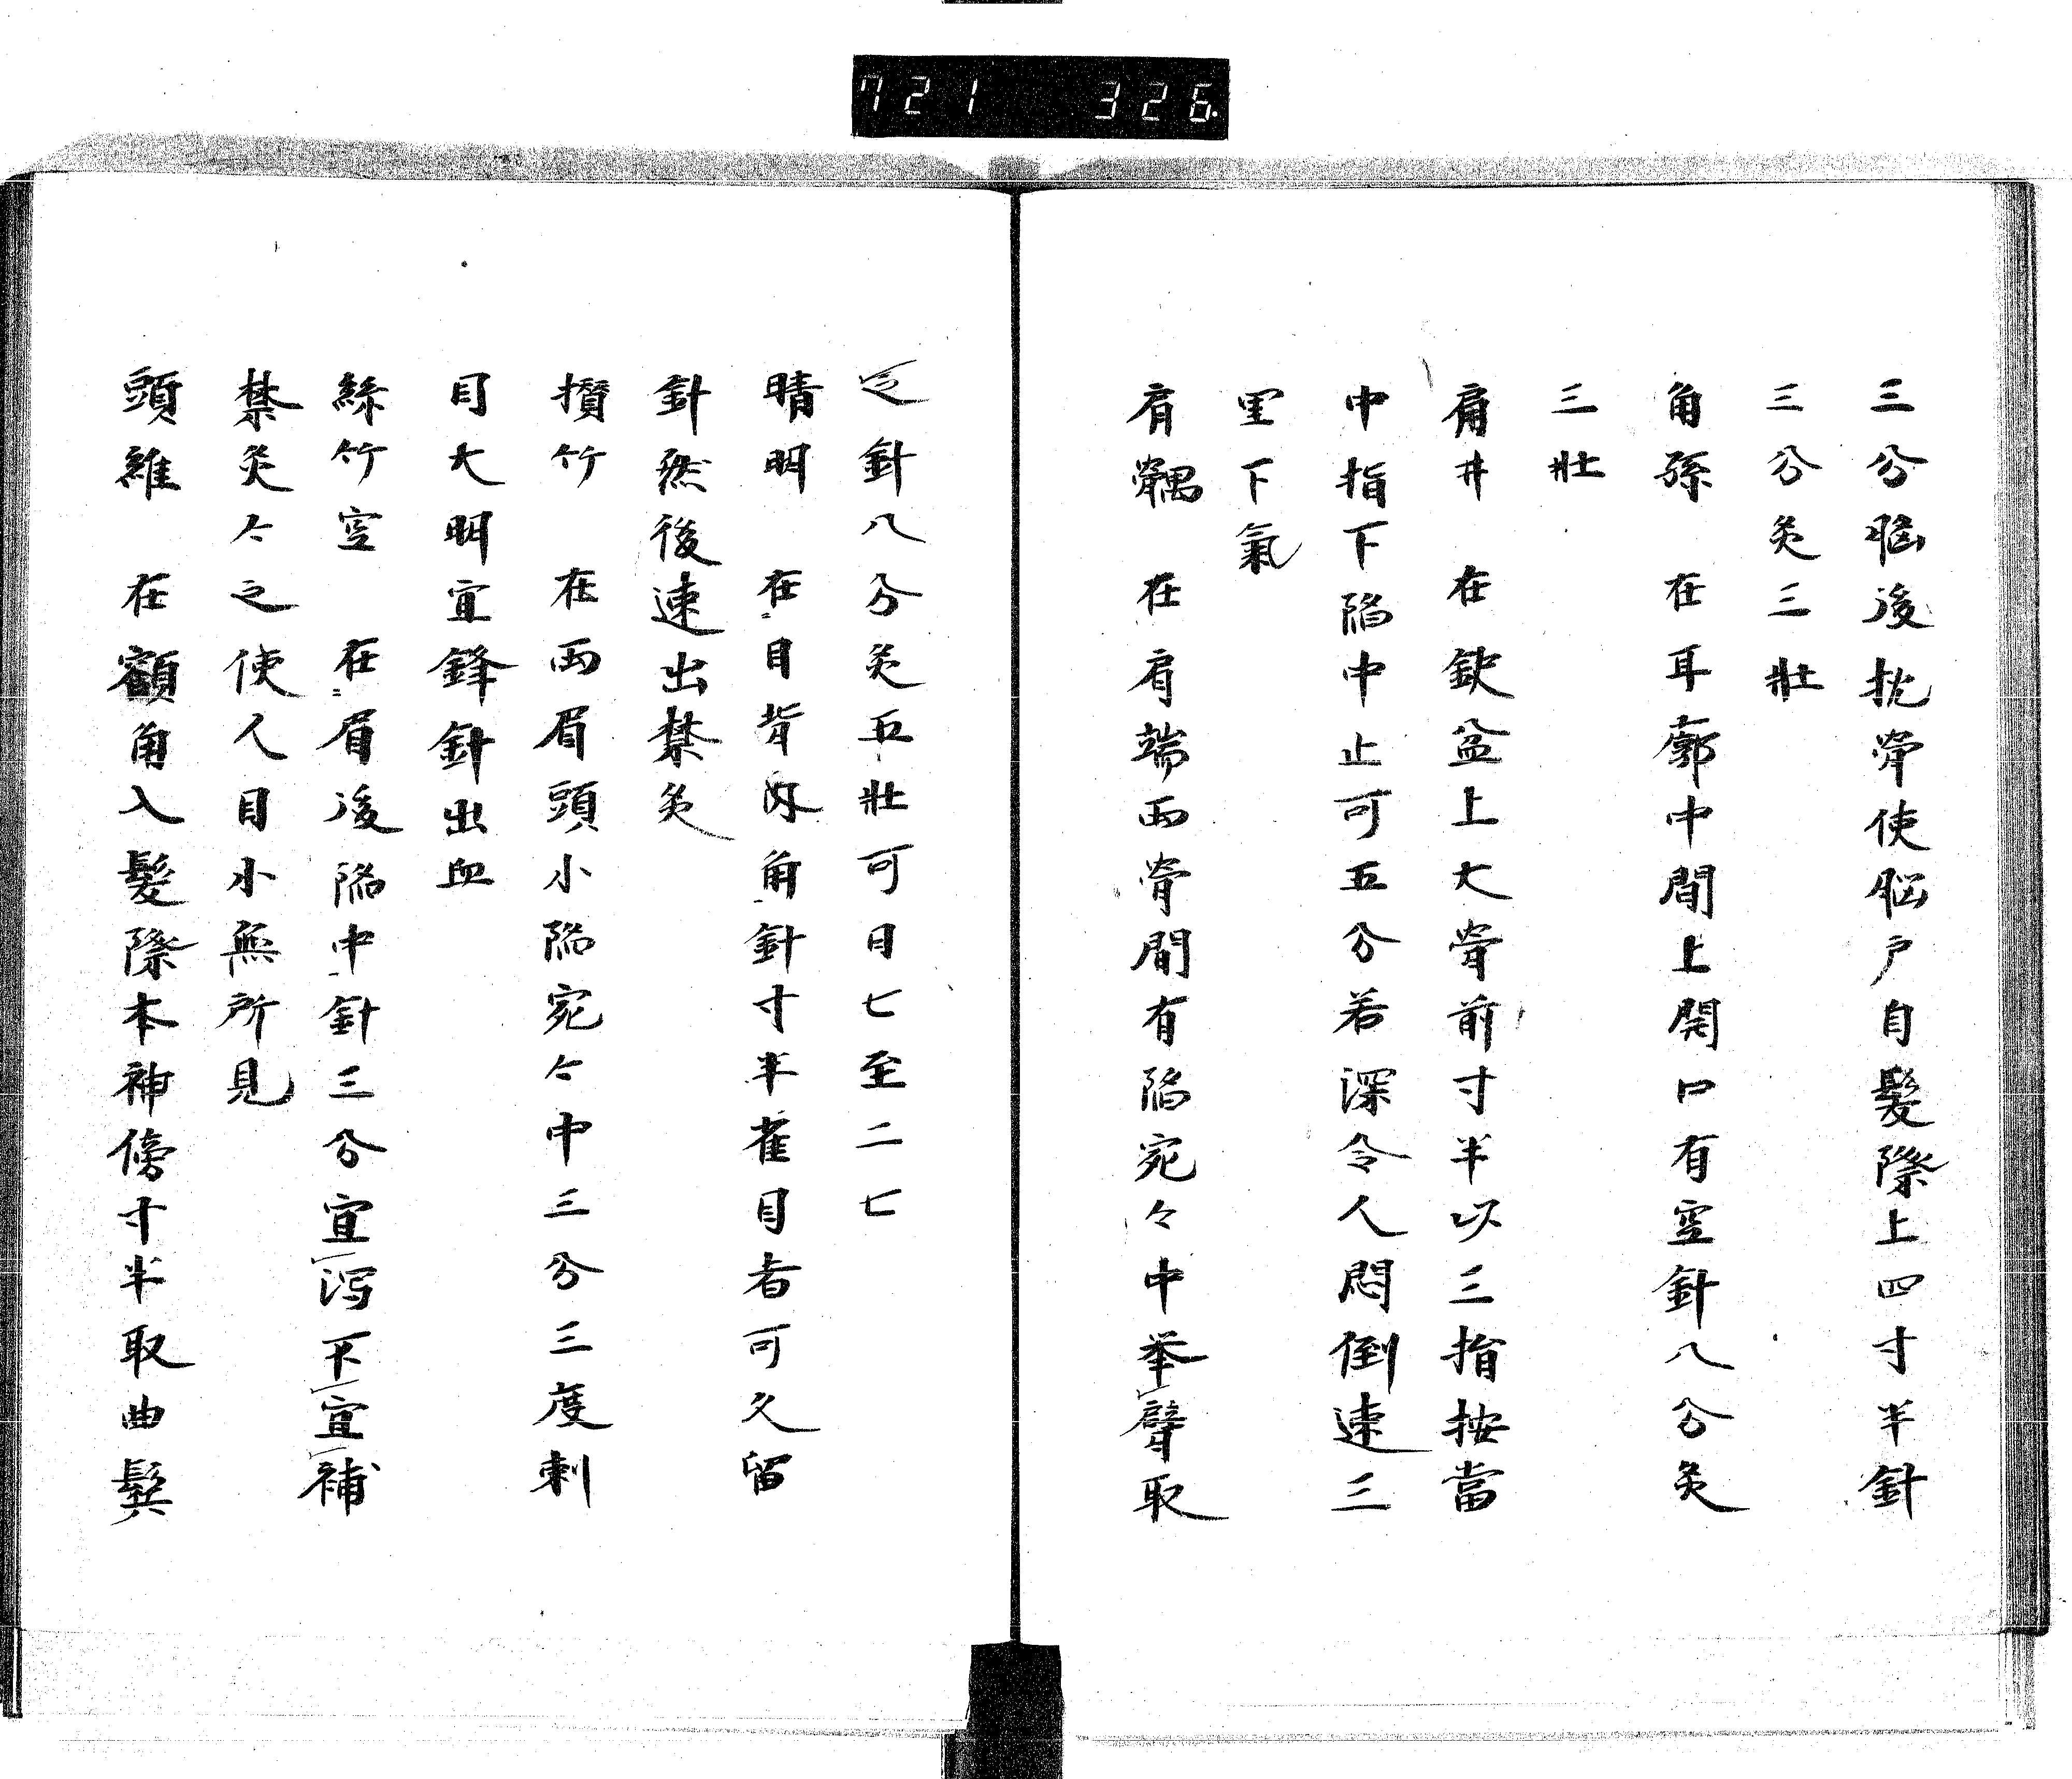 721 326
三分脳後枕骨使脳戸自髮際上四寸半針
三分灸三壮
角孫 在耳廓中間上開口有空針八分灸
三壮
肩井 在欽盆上大骨前寸半以三指按當
中指下陥中止可五分若深令人悶倒速三
里下氣
肩髃 在肩端両骨間有陥宛々中挙臂取
之針八分灸五壮可日七至二七
晴明 在目背内角針寸半雀目者可久留
針然後速出禁灸
攅竹 在両眉頭小陥宛々中三分三度刺
目大明宜鋒針出血
絲竹空 在眉後陥中針三分宜瀉不宜補
禁灸々之使人目小無所見
頭維 在額角入髮際本神傍寸半取曲鬢